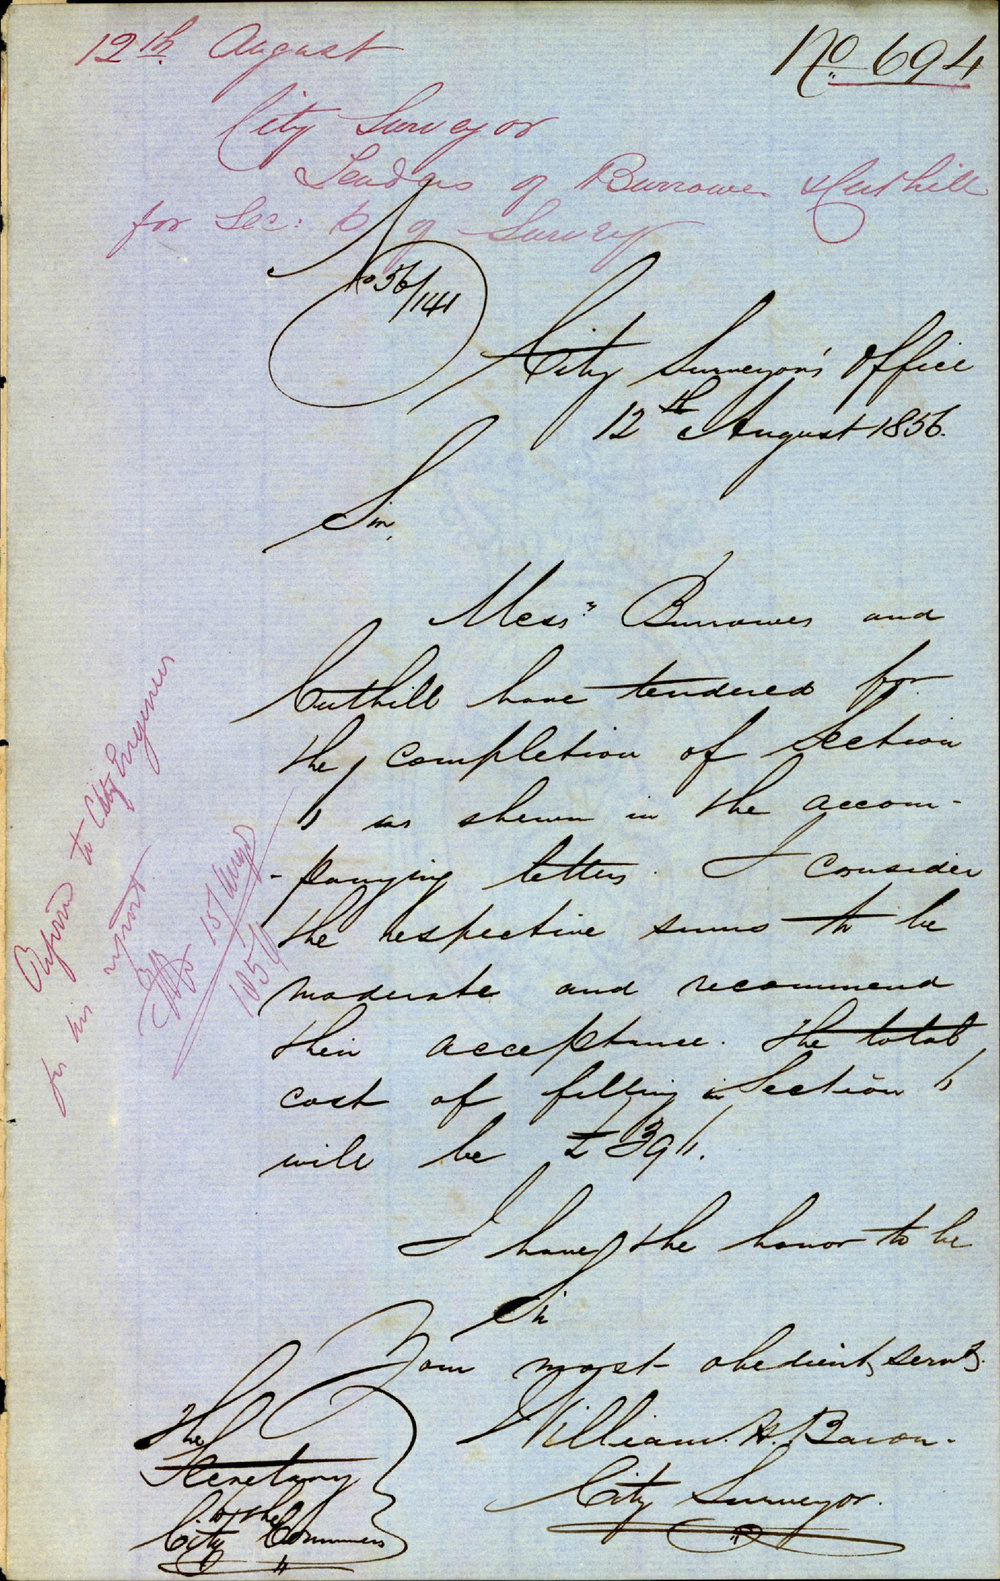 12th August
No 694
City Surveyor
Tenders of Burrowes & Cuthill
for Sec: 6 of Survey
No 56/141
City Surveyor's Office
12th August 1856.
Sir,
Messrs Burrowes and
Cuthill have tendered for
the completion of Section
6 as shewn in the accom-
-panying letters. I consider
the respective sums to be
moderate and recommend
their acceptance. The total
cost of filling in Section 6
will be £396.
I have the honor to be
Sir
Your most obedient servt.
William H. Baron.
City Surveyor.
The
Secretary
to the
City Commrs
to City Engineer
for his report
15/Augt
1856